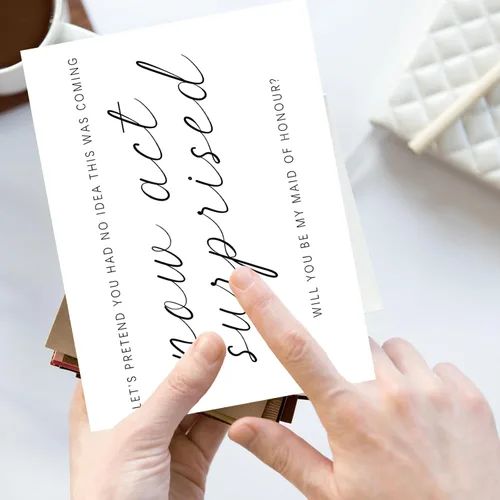 LET'S PRETEND YOU HAD NO IDEA THIS WAS COMING
now act
surprised
WILL YOU BE MY MAID OF HONOUR?